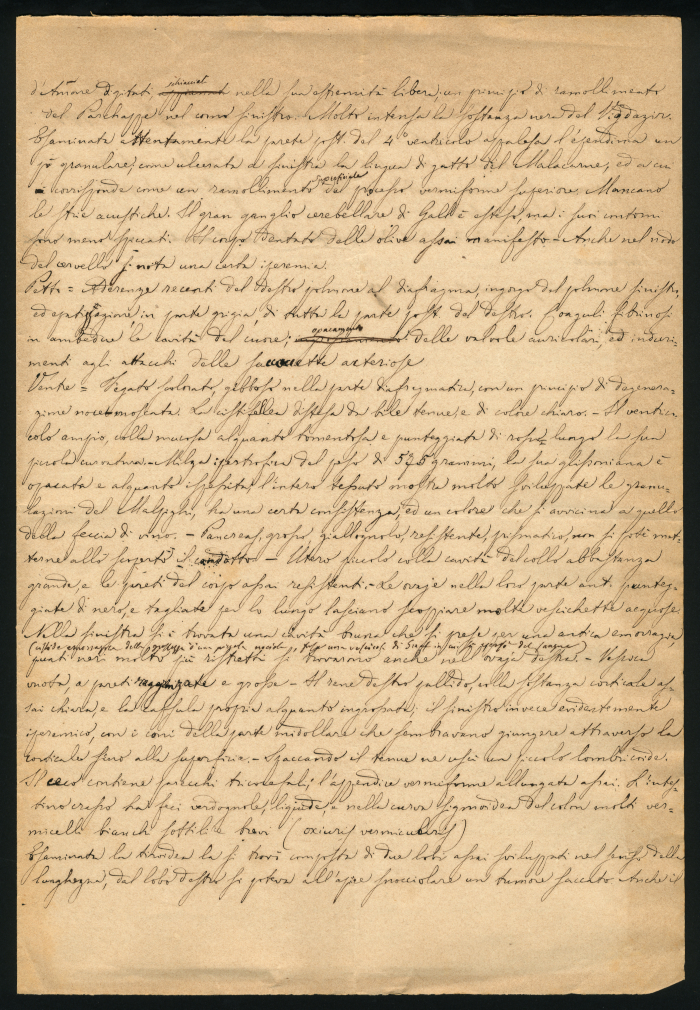 d'Amore digitati schiacciat nella sua estremità libera: un principio di ramollimento
del Parchappe nel corno sinistro. Molto intensa la sostanza nera del Vicqdazier.
Esaminata attentamente la parete post. del 4° ventricolo apalesa l'ependima un
pò granulare; come ulcerata a sinistra la lingua di gatto del Malacarne, ed a cui
corrisponde come un ramollimento superficiale del processo vermiforme superiore. Mancano
le strie acustiche. Il gran ganglio cerebellare di Gall è esteso, ma i suoi contorni
sono meno spiccati. Il corpo dentato delle olive assai manifesto – Anche nel nodo
del cervello si nota una certa iperemia.
Petto = Aderenze recenti del destro polmone al diafragma, ingorgo del polmone sinistro,
ed epatizzazione in parte grigia, di tutta la parte post. del destro. Coaguli fibrinosi
in ambedue le cavità del cuore; opacamento delle valvole auricolari, ed induri-
menti agli attacchi delle saccoccette arteriose
Ventre = Fegato colorato, gibboso nella parte diafragmatica, con un principio di degenera-
zione noce moscata. La cisti fellea distesa da bile tenue, e di colore chiaro. – Il ventri-
colo ampio, colla mucosa alquanto tomentosa e punteggiata di rosso lungo la sua
piccola curvatura. – Milza ipertrofica del peso di 575 grammi, la sua glissoniana è
opacata e alquanto ispessita, l'intero tessuto mostra molto sviluppate le granu-
lazioni del Malpighi, ha una certa consistenza, ed un colore che si avvicina a quello
della feccia di vino. – Pancreas, grosso, giallognolo, resistente, prismatico, non si potè met-
terne allo scoperto il condotto – Utero piccolo colla cavità del collo abbastanza
grande, e le pareti del corpo assai resistenti. – Le ovaje nella loro parte ant. punteg-
giate di nero, e tagliate per lo lungo lasciano scoppiare molte vescichette acquose
Nella sinistra si è trovata una cavità bruna che si prese per una antica emorragia,
(ossida emorragica della grossezza d'un piccolo da una vescica di Graaf in cui si del sangue
punti neri molto più ristretti si trovarono anche nell'ovaja destra. – Vescica
vuota, a pareti raggrinzate e grosse – Il rene destro pallido, colla sostanza corticale as-
sai chiara, e la capsula propria alquanto ingrossata; il sinistro invece evidentemente
iperemico, con i coni della parte midollare che sembravano giungere attraverso la
corticale sino alla superficie. – Spaccando il tenue ne uscì un piccolo lombricoide.
Il ceco contiene parecchi tricocefali; l'appendice vermiforme allungata assai. L'intes-
tino crasso ha feci verdognole, liquide, e nella curva sigmoidea del colon molti ver-
micelli bianchi sottili e brevi (oxiuris vermicularis)
Esaminata la tiroidea la si trovò composta di due lobi assai sviluppati nel senso della
lunghezza, dal lobo destro si poteva all'apice snocciolare un tumore saccato. Anche il